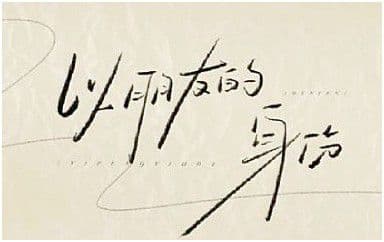 以朋友的
身份